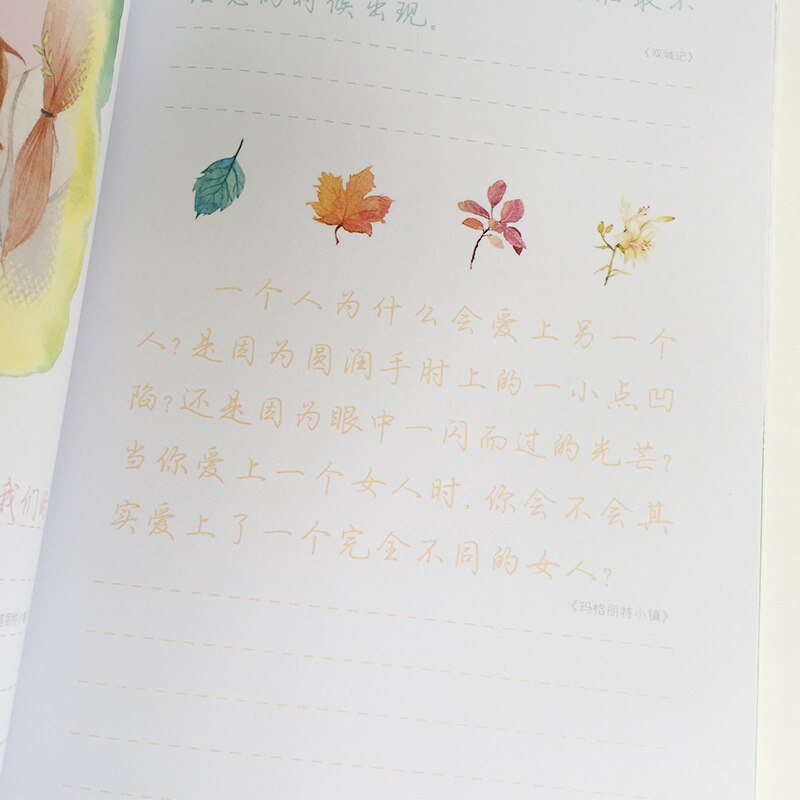 的时候出现。
《双城记》
一个人为什么会爱上另一个
人?是因为圆润手肘上的一小点凹
陷?还是因为眼中一闪而过的光芒?
当你爱上一个女人时,你会不会其
实爱上了一个完全不同的女人?
《玛格丽特小镇》
我们